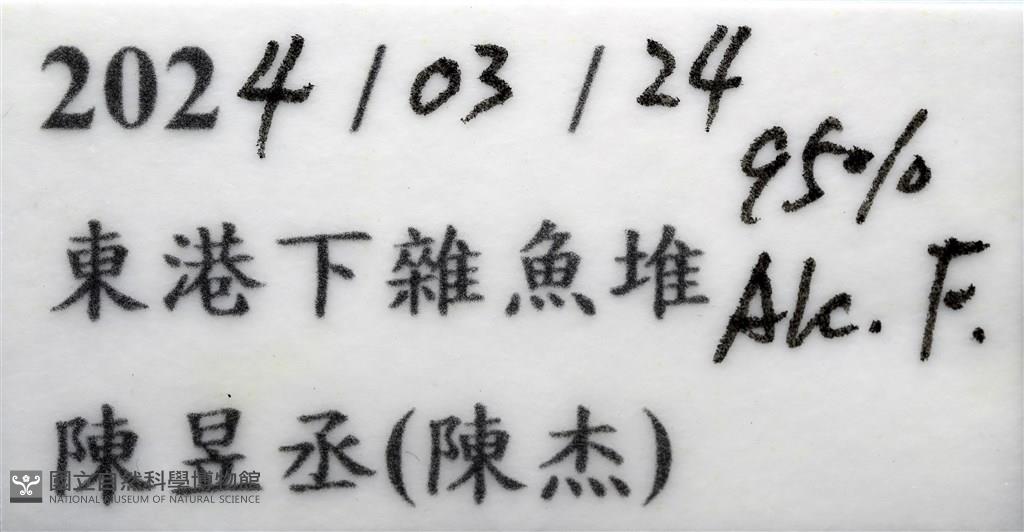 2024/03/24
95%
東港下雜魚堆
Alc. F.
陳昱丞(陳杰)
國立自然科學博物館
NATIONAL MUSEUM OF NATURAL SCIENCE